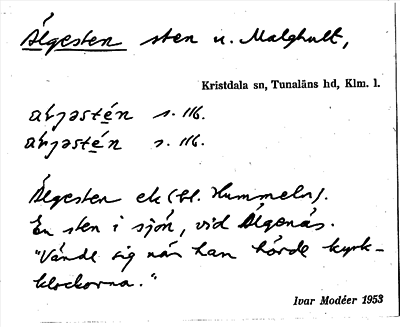 Älgesten sten u. Målghult,
Kristdala sn, Tunaläns hd, Klm. l.
s. 116.
s. 116.
Älgesten ek (bl. Hummeln).
En sten i sjön, vid Älgenäs.
"Vände sig när han hörde kyrk-
klockorna."
Ivar Modéer 1953